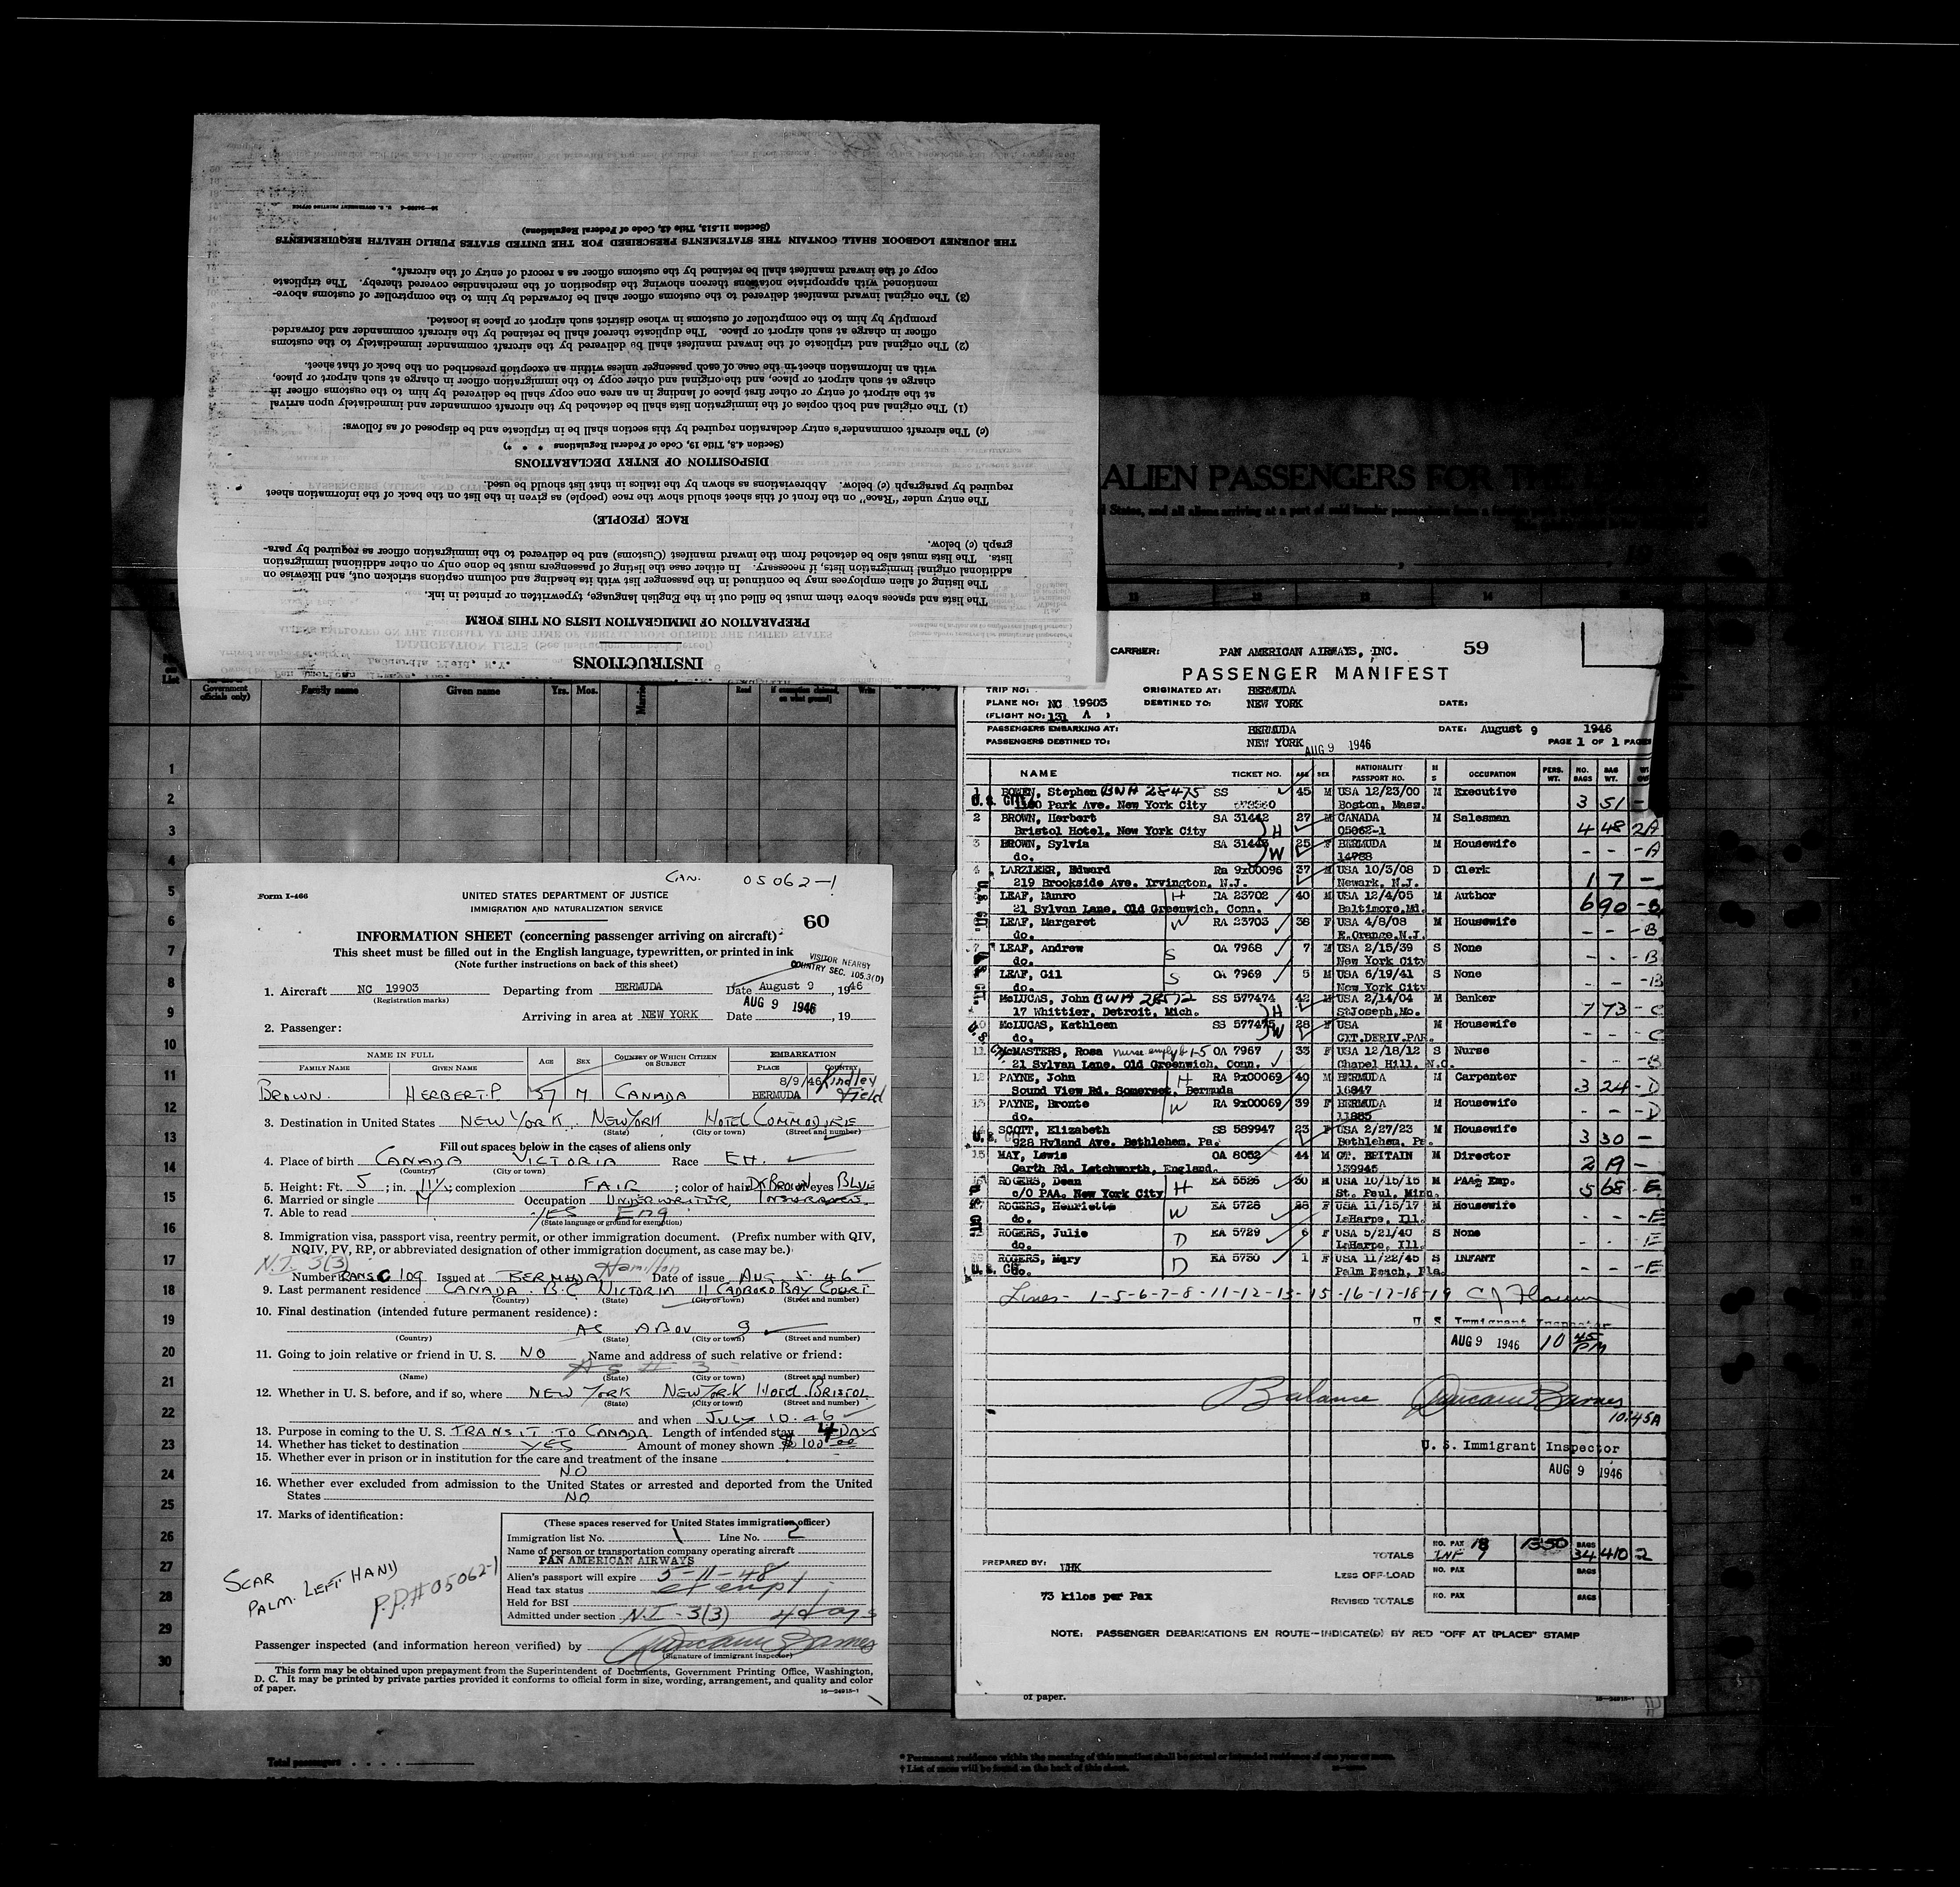 INSTRUCTIONS
PREPARATION OF IMMIGRATION LISTS ON THIS FORM
The lists and spaces above them must be filled out in the English language, typewritten or printed in ink.
The listing of alien employees may be continued in the passenger list with its heading and column captions stricken out, and likewise on
additional original immigration lists, if necessary. In either case the listing of passengers must be done only on other additional immigration
lists. The lists must also be detached from the inward manifest (Customs) and be delivered to the immigration officer as required by para-
graph (c) below.
RACE (PEOPLE)
The entry under "Race" on the front of this sheet should show the race (people) as given in the list on the back of the information sheet
required by paragraph (c) below. Abbreviations as shown by the italics in that list should be used.
DISPOSITION OF ENTRY DECLARATIONS
(Section 4.8, Title 19, Code of Federal Regulations * * *)
(c) The aircraft commander's entry declaration required by this section shall be in triplicate and be disposed of as follows:
(1) The original and both copies of the immigration lists shall be detached by the aircraft commander and immediately upon arrival
at the airport of entry or other first place of landing in an area one copy shall be delivered by him to the customs officer in
charge at such airport or place, and the original and other copy to the immigration officer in charge at such airport or place,
with an information sheet in the case of each passenger unless within an exception prescribed on the back of that sheet.
(2) The original and triplicate of the inward manifest shall be delivered by the aircraft commander immediately to the customs
officer in charge at such airport or place. The duplicate thereof shall be retained by the aircraft commander and forwarded
promptly by him to the comptroller of customs in whose district such airport or place is located.
(3) The original inward manifest delivered to the customs officer shall be forwarded by him to the comptroller of customs above-
mentioned with appropriate notations thereon showing the disposition of the merchandise covered thereby. The triplicate
copy of the inward manifest shall be retained by the customs officer as a record of entry of the aircraft.
THE JOURNEY LOGBOOK SHALL CONTAIN THE STATEMENTS PRESCRIBED FOR THE UNITED STATES PUBLIC HEALTH REQUIREMENTS
(Section 11.513, Title 42, Code of Federal Regulations)
ALIEN PASSENGERS FOR
States, and all aliens arriving at a part of said
11 12 13 14
List
Government officials only)
Family name Given name Yrs. Mos. Read Write
1
2
3
4
5
6
7
8
9
10
11
12
13
14
15
16
17
18
19
20
21
22
23
24
25
26
27
28
29
30
CAN. 05062-1
Form I-466
UNITED STATES DEPARTMENT OF JUSTICE
IMMIGRATION AND NATURALIZATION SERVICE
60
INFORMATION SHEET (concerning passenger arriving on aircraft)
This sheet must be filled out in the English language, typewritten, or printed in ink
(Note further instructions on back of this sheet)
VISITOR NEARBY
COUNTRY SEC. 105.3(D)
1. Aircraft NC 19903 Departing from BERMUDA Date August 9, 1946
(Registration marks)
AUG 9 1946
Arriving in area at NEW YORK Date , 19
2. Passenger:
NAME IN FULL AGE SEX COUNTRY OF WHICH CITIZEN OR SUBJECT EMBARKATION
FAMILY NAME GIVEN NAME PLACE COUNTRY
8/9/46 Kindley Field
BROWN. HERBERT.P M. CANADA BERMUDA
3. Destination in United States NEW YORK. NEW YORK HOTEL COMMODORE
(State) (City or town) (Street and number)
Fill out spaces below in the cases of aliens only
4. Place of birth CANADA VICTORIA Race EH.
(Country) (City or town)
5. Height: Ft. 5; in. 11½; complexion FAIR; color of hair DK BROWN eyes BLUE
6. Married or single M Occupation UNDERWRITER, INSURANCE
7. Able to read YES Eng
(State language or ground for exemption)
8. Immigration visa, passport visa, reentry permit, or other immigration document. (Prefix number with QIV,
NQIV, PV, RP, or abbreviated designation of other immigration document, as case may be.)
N.I. 3(3) Hamilton
Number TRANS C 109 Issued at BERMUDA Date of issue AUG 5-46
9. Last permanent residence CANADA. B.C. VICTORIA 11 CADBORO BAY COURT
(Country) (State) (City or town) (Street and number)
10. Final destination (intended future permanent residence):
AS ABOV 9
(Country) (State) (City or town) (Street and number)
11. Going to join relative or friend in U. S. NO Name and address of such relative or friend:
AS # 3
(Name) (State) (City or town) (Street and number)
12. Whether in U. S. before, and if so, where NEW YORK NEW YORK Hotel BRISTOL
(State) (City or town) (Street and number)
and when JULY 10.46
13. Purpose in coming to the U. S. TRANSIT TO CANADA Length of intended stay 4 DAYS
14. Whether has ticket to destination YES Amount of money shown $100.00
15. Whether ever in prison or in institution for the care and treatment of the insane
NO
16. Whether ever excluded from admission to the United States or arrested and deported from the United
States NO
17. Marks of identification:
SCAR
PALM. LEFT HAND
P.P.# 05062-1
(These spaces reserved for United States immigration officer)
Immigration list No. 1 Line No. 2
Name of person or transportation company operating aircraft
PAN AMERICAN AIRWAYS
Alien's passport will expire 5-11-48
Head tax status exempt
Held for BSI
Admitted under section N.I-3(3) 4 days
Passenger inspected (and information hereon verified) by Duncan Barnes
(Signature of immigrant inspector)
This form may be obtained upon prepayment from the Superintendent of Documents, Government Printing Office, Washington,
D. C. It may be printed by private parties provided it conforms to official form in size, wording, arrangement, and quality and color
of paper. 16—24915-1
CARRIER: PAN AMERICAN AIRWAYS, INC. 59
PASSENGER MANIFEST
TRIP NO: ORIGINATED AT: BERMUDA
PLANE NO: NC 19903 DESTINED TO: NEW YORK DATE:
(FLIGHT NO: 131 A )
PASSENGERS EMBARKING AT: BERMUDA DATE: August 9 1946
PASSENGERS DESTINED TO: NEW YORK AUG 9 1946 PAGE 1 OF 1 PAGES
NAME TICKET NO. AGE SEX NATIONALITY PASSPORT NO. M S OCCUPATION PERS. WT. NO. BAGS BAG WT.
1 BOWEN, Stephen BWA 28475 SS 45 M USA 12/23/00 M Executive
Park Ave. New York City Boston, Mass. 3 51 -
2 BROWN, Herbert SA 31442 27 M CANADA M Salesman
Bristol Hotel, New York City H 05062-1 4 48 2A
3 BROWN, Sylvia SA 31443 25 F BERMUDA M Housewife
do. W 14788 - - -A
4 LARZLEER, Edward Ra 9x00096 37 M USA 10/3/08 D Clerk
219 Brookside Ave. Irvington, N.J. Newark, N.J. 1 7 -
LEAF, Munro H RA 23702 40 M USA 12/4/05 M Author
21 Sylvan Lane, Old Greenwich, Conn. Baltimore, Md. 6 90 -B
LEAF, Margaret W RA 23703 38 F USA 4/8/08 M Housewife
do. E.Orange, N.J. - - -B
7 LEAF, Andrew S OA 7968 7 M USA 2/15/39 S None
do. New York City - - -B
LEAF, Gil S OA 7969 5 M USA 6/19/41 S None
do. New York City - - -B
McLUCAS, John BWA SS 577474 42 M USA 2/14/04 M Banker
17 Whittier, Detroit, Mich. H StJoseph, Mo. 7 73 -C
10 McLUCAS, Kathleen SS 577475 28 F USA M Housewife
do. W CIT.DERIV.PAR. - - -C
11 McMASTERS, Rosa nurse empl by 1-5 OA 7967 33 F USA 12/18/12 S Nurse
21 Sylvan Lane, Old Greenwich, Conn. Chapel Hill, N.C. - - -B
12 PAYNE, John H RA 9x00069 40 M BERMUDA M Carpenter
Sound View Rd. Somerset, Bermuda 16847 3 24 -D
13 PAYNE, Bronte W RA 9x00069 39 F BERMUDA M Housewife
do. 11885 - - -D
SCOTT, Elizabeth SS 589947 23 F USA 2/27/23 M Housewife
928 Hyland Ave. Bethlehem, Pa. Bethlehem, Pa. 3 30 -
15 MAY, Lewis OA 8052 44 M GT. BRITAIN M Director
Garth Rd. Letchworth, England. 139945 2 19 -
ROGERS, Dean EA 5526 30 M USA 10/15/15 M PAA Emp.
c/o PAA. New York City H St. Paul, Minn. 5 68 -E
ROGERS, Henrietta W EA 5728 28 F USA 11/15/17 M Housewife
do. LaHarpe, Ill. - - -E
ROGERS, Julie D EA 5729 6 F USA 5/21/40 S None
do. LaHarpe, Ill. - - E
ROGERS, Mary D EA 5730 1 F USA 11/22/45 S INFANT
do. Palm Beach, Fla. - - -E
Lines- 1-5-6-7-8-11-12-13-15-16-17-18-19
U S Immigrant Inspector
AUG 9 1946 10 45 PM
Balance Duncan Barnes
10:45A
U. S. Immigrant Inspector
AUG 9 1946
PREPARED BY: WHK
TOTALS NO. PAX 18 INF 1 1350 BAGS 34 410 2
LESS OFF-LOAD NO. PAX BAGS
REVISED TOTALS NO. PAX BAGS
73 kilos per Pax
NOTE: PASSENGER DEBARKATIONS EN ROUTE—INDICATE(D) BY RED "OFF AT (PLACE)" STAMP
of paper.
Total passengers
* Permanent residence within the meaning of this manifest shall be actual or intended residence of one year or more.
† List of races will be found on the back of this sheet.